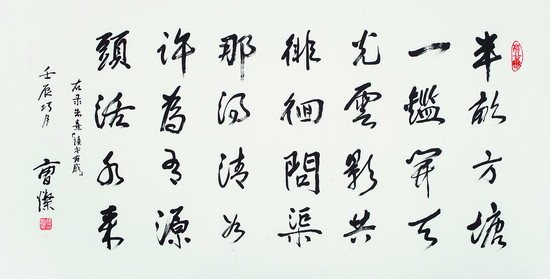 半畝方塘
一鑑開天
光雲影共
徘徊問渠
那得清如
許為有源
頭活水来
右录朱熹读书有感
壬辰巧月
曹燦